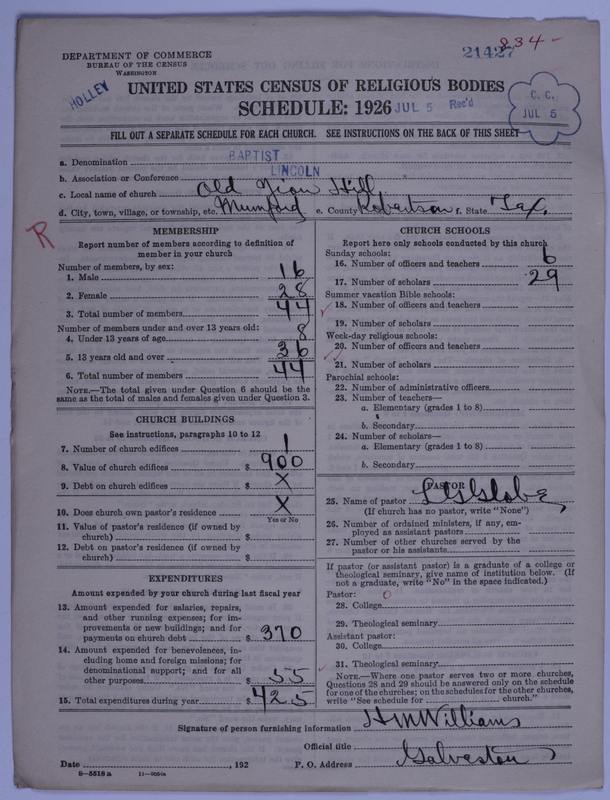 834-
21427
DEPARTMENT OF COMMERCE
BUREAU OF THE CENSUS
WASHINGTON
HOLLEY
UNITED STATES CENSUS OF RELIGIOUS BODIES
SCHEDULE: 1926 JUL 5 Rec'd
C. C.
JUL 5
FILL OUT A SEPARATE SCHEDULE FOR EACH CHURCH. SEE INSTRUCTIONS ON THE BACK OF THIS SHEET
a. Denomination BAPTIST
b. Association or Conference LINCOLN
c. Local name of church Old Zion Hill
d. City, town, village, or township, etc. Mumford e. County Robertson f. State Tex.
R
MEMBERSHIP
Report number of members according to definition of member in your church
Number of members, by sex:
1. Male 16
2. Female 28
3. Total number of members 44
Number of members under and over 13 years old:
4. Under 13 years of age 8
5. 13 years old and over 36
6. Total number of members 44
NOTE.—The total given under Question 6 should be the
same as the total of males and females given under Question 3.
CHURCH BUILDINGS
See instructions, paragraphs 10 to 12
7. Number of church edifices 1
8. Value of church edifices $ 900
9. Debt on church edifices $ X
10. Does church own pastor's residence X
Yes or No
11. Value of pastor's residence (if owned by
church) $
12. Debt on pastor's residence (if owned by
church) $
EXPENDITURES
Amount expended by your church during last fiscal year
13. Amount expended for salaries, repairs,
and other running expenses; for im-
provements or new buildings; and for
payments on church debt $ 370
14. Amount expended for benevolences, in-
cluding home and foreign missions; for
denominational support; and for all
other purposes $ 55
15. Total expenditures during year $ 425
CHURCH SCHOOLS
Report here only schools conducted by this church
Sunday schools:
16. Number of officers and teachers 6
17. Number of scholars 29
Summer vacation Bible schools:
18. Number of officers and teachers
19. Number of scholars
Week-day religious schools:
20. Number of officers and teachers
21. Number of scholars
Parochial schools:
22. Number of administrative officers
23. Number of teachers—
a. Elementary (grades 1 to 8)
b. Secondary
24. Number of scholars—
a. Elementary (grades 1 to 8)
b. Secondary
PASTOR
25. Name of pastor
(If church has no pastor, write "None")
26. Number of ordained ministers, if any, em-
ployed as assistant pastors
27. Number of other churches served by the
pastor or his assistants
If pastor (or assistant pastor) is a graduate of a college or
theological seminary, give name of institution below. (If
not a graduate, write "No" in the space indicated.)
Pastor: 0
28. College
29. Theological seminary
Assistant pastor:
30. College
31. Theological seminary
NOTE.—Where one pastor serves two or more churches,
Questions 28 and 29 should be answered only on the schedule
for one of the churches; on the schedules for the other churches,
write "See schedule for church."
Signature of person furnishing information H M Williams
Official title
Date , 192 P. O. Address Galveston
8-5518a 11-9054a